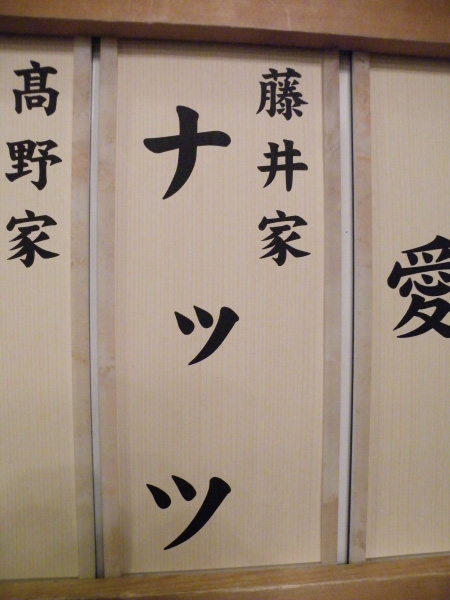 愛
藤井家
ナッツ
髙野家